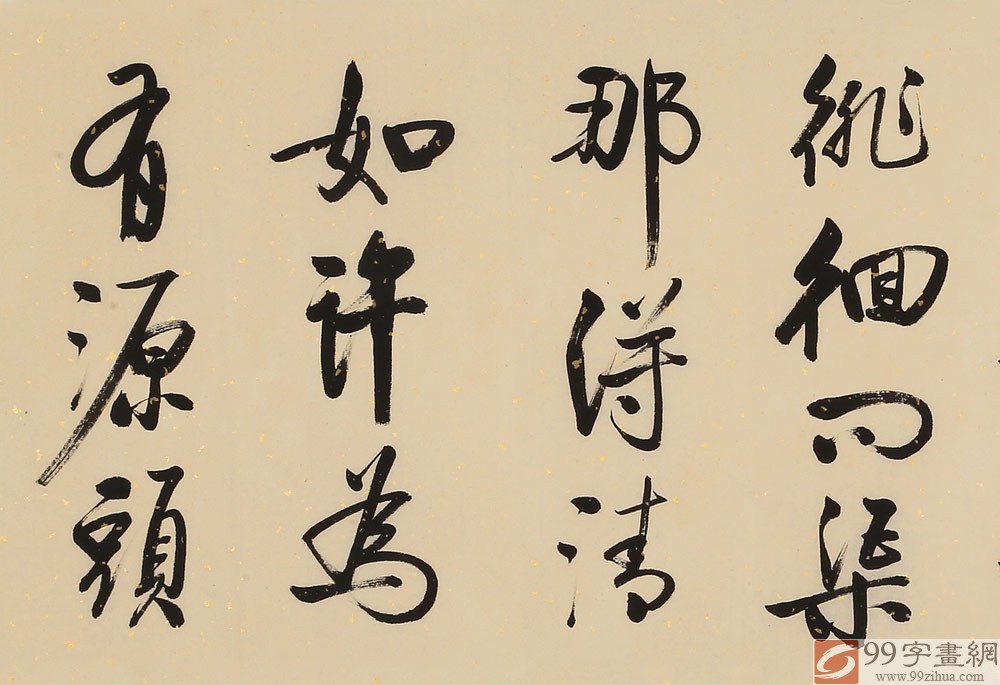 徘徊问渠
那得清
如许為
有源頭
99字畫網
www.99zihua.com